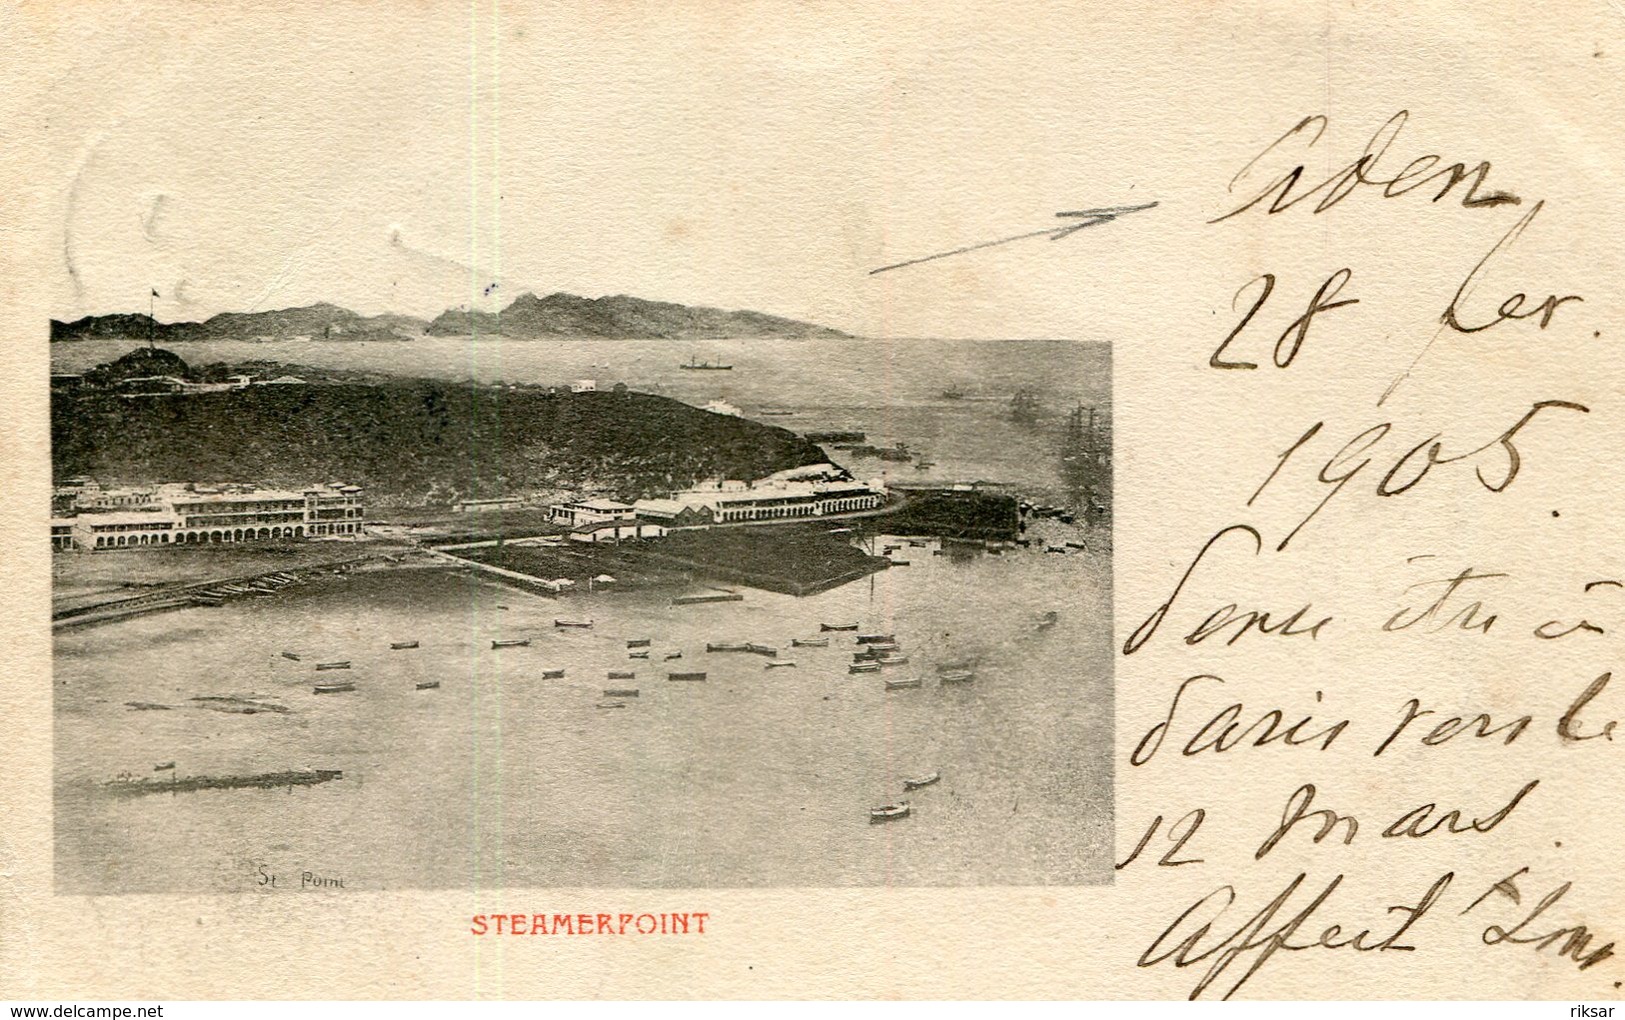 Aden
28 fer.
1905.
Pense être à
Paris vers le
12 Mars.
Affect
St Point
STEAMERPOINT
www.delcampe.net
riksar